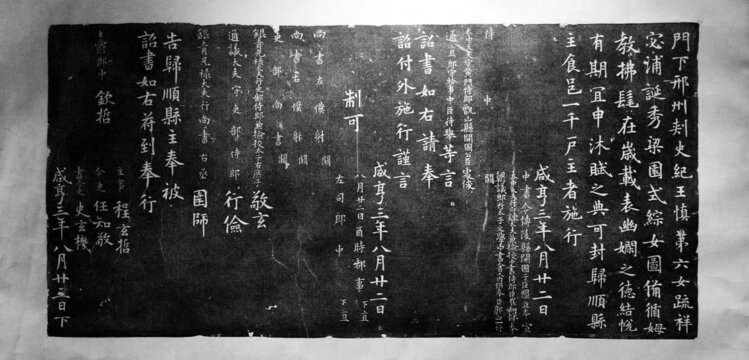 門下邢州刺史紀王慎第六女疏祥
宓浦誕秀梁園式綜女圖備循姆
教拂髦在歲載表幽嫻之德結帨
有期宜申沐賦之典可封歸順縣
主食邑一千戶主者施行
咸亨三年八月廿二日
侍中 闕
等言
詔書如右請奉
詔付外施行謹言
咸亨三年八月廿二日
制可
八月廿二日酉時都事 下直
左司郎中 下直
尚書左僕射闕
尚書右僕射闕
吏部尚書闕
銀青光祿大夫行吏部侍郎 敬玄
通議大夫守吏部侍郎 行儉
銀青光祿大夫行尚書右丞 國師
告歸順縣主奉被
詔書如右符到奉行
主事程玄哲
主爵郎中欽哲 令史任知敬
書令史史玄機
咸亨三年八月廿三日下